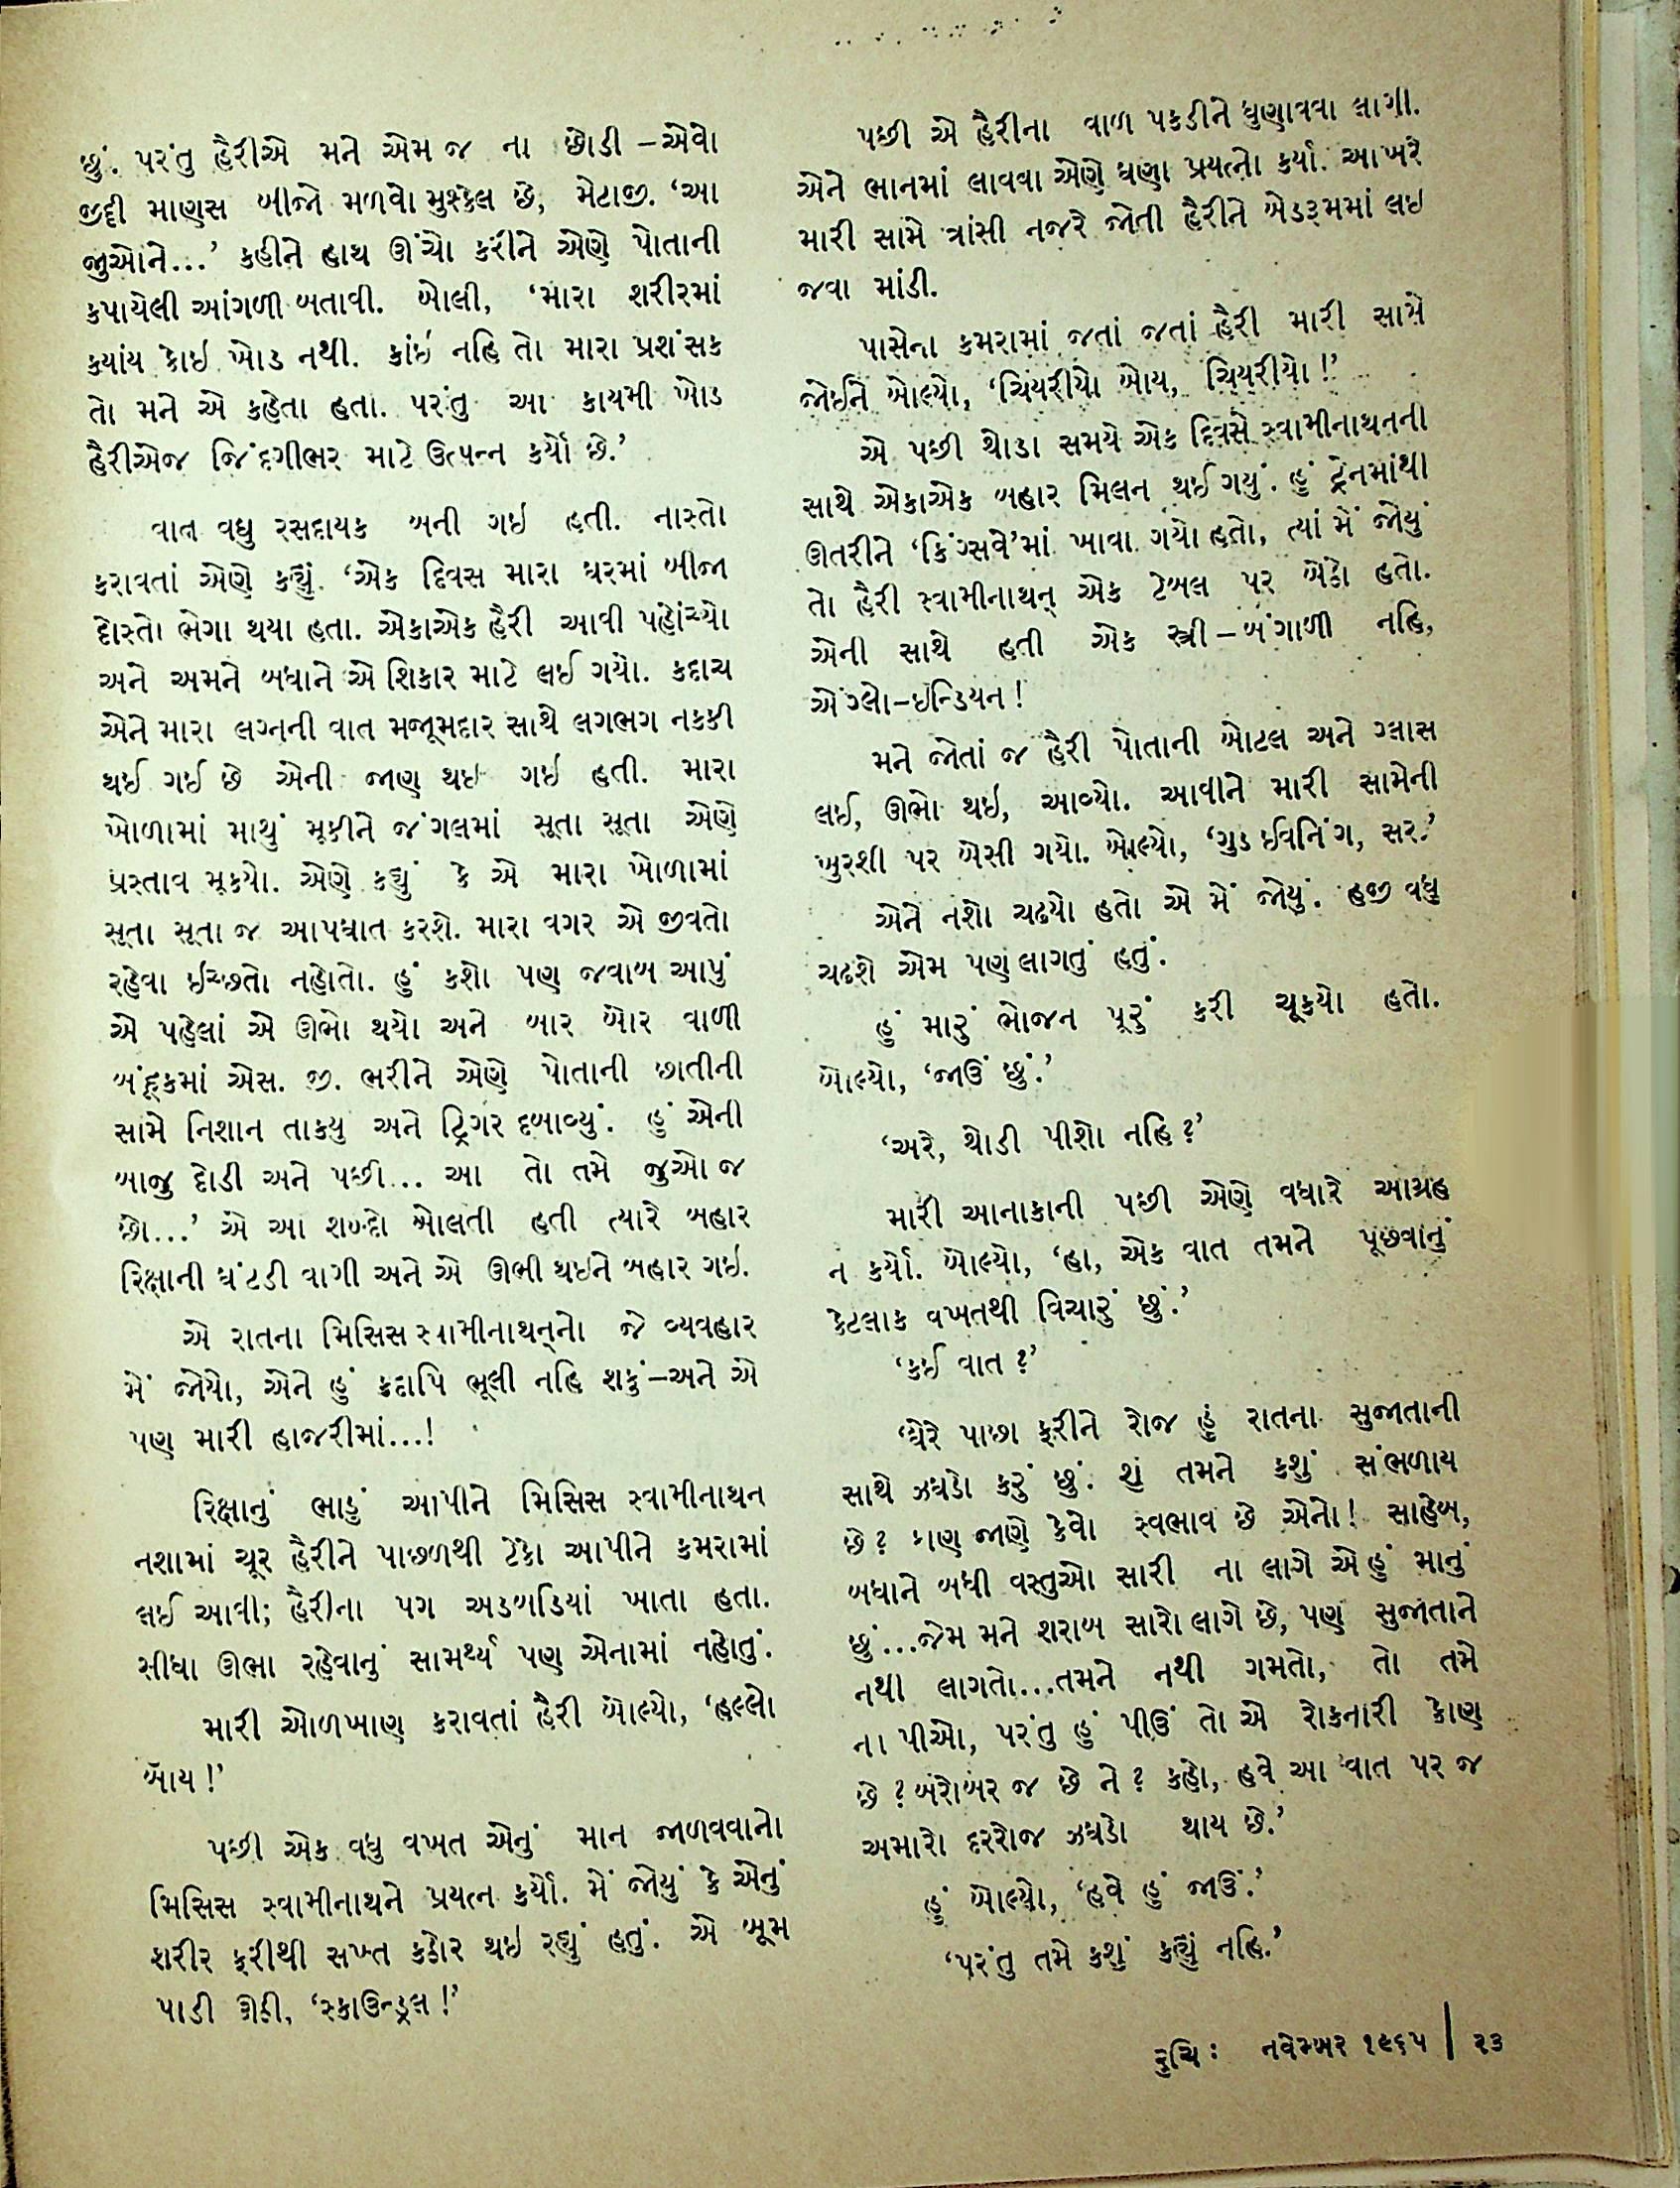 છું. પરંતુ હૈરીએ મને એમ જ ના છોડી – એવો
જીદ્દી માણસ બીજો મળવો મુશ્કેલ છે, મેટાજી. ‘આ
જુઓને...’ કહીને હાથ ઊંચો કરીને એણે પોતાની
કપાયેલી આંગળી બતાવી. બોલી, ‘મારા શરીરમાં
કયાંય કોઇ ખોડ નથી. કાંઇ નહિ તો મારા પ્રશંસક
તો મને એ કહેતા હતા. પરંતુ આ કાયમી ખોડ
હૈરીએજ જિંદગીભર માટે ઉત્પન્ન કર્યો છે.’
વાત વધુ રસદાયક બની ગઇ હતી. નાસ્તો
કરાવતાં એણે કહ્યું. ‘એક દિવસ મારા ઘરમાં બીજા
દોસ્તો ભેગા થયા હતા. એકાએક હૈરી આવી પહોંચ્યો
અને અમને બધાને એ શિકાર માટે લઈ ગયો. કદાચ
એને મારા લગ્નની વાત મજૂમદાર સાથે લગભગ નકકી
થઈ ગઈ છે એની જાણ થઇ ગઇ હતી. મારા
ખોળામાં માથું મૂકીને જંગલમાં સૂતા સૂતા એણે
પ્રસ્તાવ મૂકયો. એણે કહ્યું કે એ મારા ખોળામાં
સૂતા સૂતા જ આપઘાત કરશે. મારા વગર એ જીવતો
રહેવા ઈચ્છતો નહોતો. હું કશો પણ જવાબ આપું
એ પહેલાં એ ઊભો થયો અને બાર બોર વાળી
બંદૂકમાં એસ. જી. ભરીને એણે પોતાની છાતીની
સામે નિશાન તાકયુ અને ટ્રિગર દબાવ્યું. હું એની
બાજુ દોડી અને પછી... આ તો તમે જુઓ જ
છો...’ એ આ શબ્દો બોલતી હતી ત્યારે બહાર
રિક્ષાની ઘંટડી વાગી અને એ ઊભી થઇને બહાર ગઇ.
એ રાતના મિસિસ સ્વામીનાથન્‌નો જે વ્યવહાર
મેં જોયો, એને હું કદાપિ ભૂલી નહિ શકું–અને એ
પણ મારી હાજરીમાં...!
રિક્ષાનું ભાડું આપીને મિસિસ સ્વામીનાથન
નશામાં ચૂર હૈરીને પાછળથી ટેકો આપીને કમરામાં
લઈ આવી; હૈરીના પગ અડબડિયાં ખાતા હતા.
સીધા ઊભા રહેવાનું સામર્થ્ય પણ એનામાં નહોતું.
મારી ઓળખાણ કરાવતાં હૈરી બોલ્યો, ‘હલ્લો
બૉય !’
પછી એક વધુ વખત એનું માન જાળવવાનો
મિસિસ સ્વામીનાથને પ્રયત્ન કર્યો. મેં જોયું કે એનું
શરીર ફરીથી સખ્ત કઠોર થઇ રહ્યું હતું. એ બૂમ
પાડી ઊઠી, ‘સ્કાઉન્ડ્રલ !’
પછી એ હૈરીના વાળ પકડીને ધુણાવવા લાગી.
એને ભાનમાં લાવવા એણે ઘણા પ્રયત્નો કર્યા. આખરે
મારી સામે ત્રાંસી નજરે જોતી હૈરીને બેડરૂમમાં લઇ
જવા માંડી.
પાસેના કમરામાં જતાં જતાં હૈરી મારી સામે
જોઇને બોલ્યો, ‘ચિયરીયો બોય, ચિયરીયો !’
એ પછી થોડા સમયે એક દિવસે સ્વામીનાથનની
સાથે એકાએક બહાર મિલન થઈ ગયું. હું ટ્રેનમાંથી
ઊતરીને ‘કિંગ્સવે’માં ખાવા ગયો હતો, ત્યાં મેં જોયું
તો હૈરી સ્વામીનાથન્ એક ટેબલ પર બેઠો હતો.
એની સાથે હતી એક સ્ત્રી – બંગાળી નહિ,
એંગ્લો–ઇન્ડિયન !
મને જોતાં જ હૈરી પોતાની બોટલ અને ગ્લાસ
લઈ, ઊભો થઇ, આવ્યો. આવીને મારી સામેની
ખુરશી પર બેસી ગયો. બોલ્યો, ‘ગુડ ઈવનિંગ, સર.’
એને નશો ચઢયો હતો એ મેં જોયું. હજી વધુ
ચઢશે એમ પણ લાગતું હતું.
હું મારું ભોજન પૂરું કરી ચૂકયો હતો.
બોલ્યો, ‘જાઉં છું.’
‘અરે, થોડી પીશો નહિ ?’
મારી આનાકાની પછી એણે વધારે આગ્રહ
ન કર્યો. બોલ્યો, ‘હા, એક વાત તમને પૂછવાનું
કેટલાક વખતથી વિચારું છું.’
‘કઈ વાત ?’
‘ઘેરે પાછા ફરીને રોજ હું રાતના સુજાતાની
સાથે ઝઘડો કરું છું. શું તમને કશું સંભળાય
છે ? કાણ જાણે કેવો સ્વભાવ છે એનો ! સાહેબ,
બધાને બધી વસ્તુઓ સારી ના લાગે એ હું માનું
છું...જેમ મને શરાબ સારો લાગે છે, પણ સુજાતાને
નથી લાગતો...તમને નથી ગમતો, તો તમે
ના પીઓ, પરંતુ હું પીઉં તો એ રોકનારી કોણ
છે ? બરોબર જ છે ને ? કહો, હવે આ વાત પર જ
અમારો દરરોજ ઝઘડો થાય છે.’
હું બોલ્યો, ‘હવે હું જાઉં.’
‘પરંતુ તમે કશું કહ્યું નહિ.’
રુચિ : નવેમ્બર ૧૯૬૫ | ૨૩